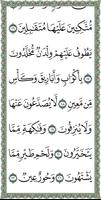 مُّتَّكِـِٔينَ عَلَيْهَا مُتَقَٰبِلِينَ ١٦
يَطُوفُ عَلَيْهِمْ وِلْدَٰنٌ مُّخَلَّدُونَ ١٧
بِأَكْوَابٍ وَأَبَارِيقَ وَكَأْسٍ
مِّن مَّعِينٍ ١٨ لَّا يُصَدَّعُونَ عَنْهَا
وَلَا يُنزِفُونَ ١٩ وَفَٰكِهَةٍ مِّمَّا
يَتَخَيَّرُونَ ٢٠ وَلَحْمِ طَيْرٍ مِّمَّا
يَشْتَهُونَ ٢١ وَحُورٌ عِينٌ ٢٢